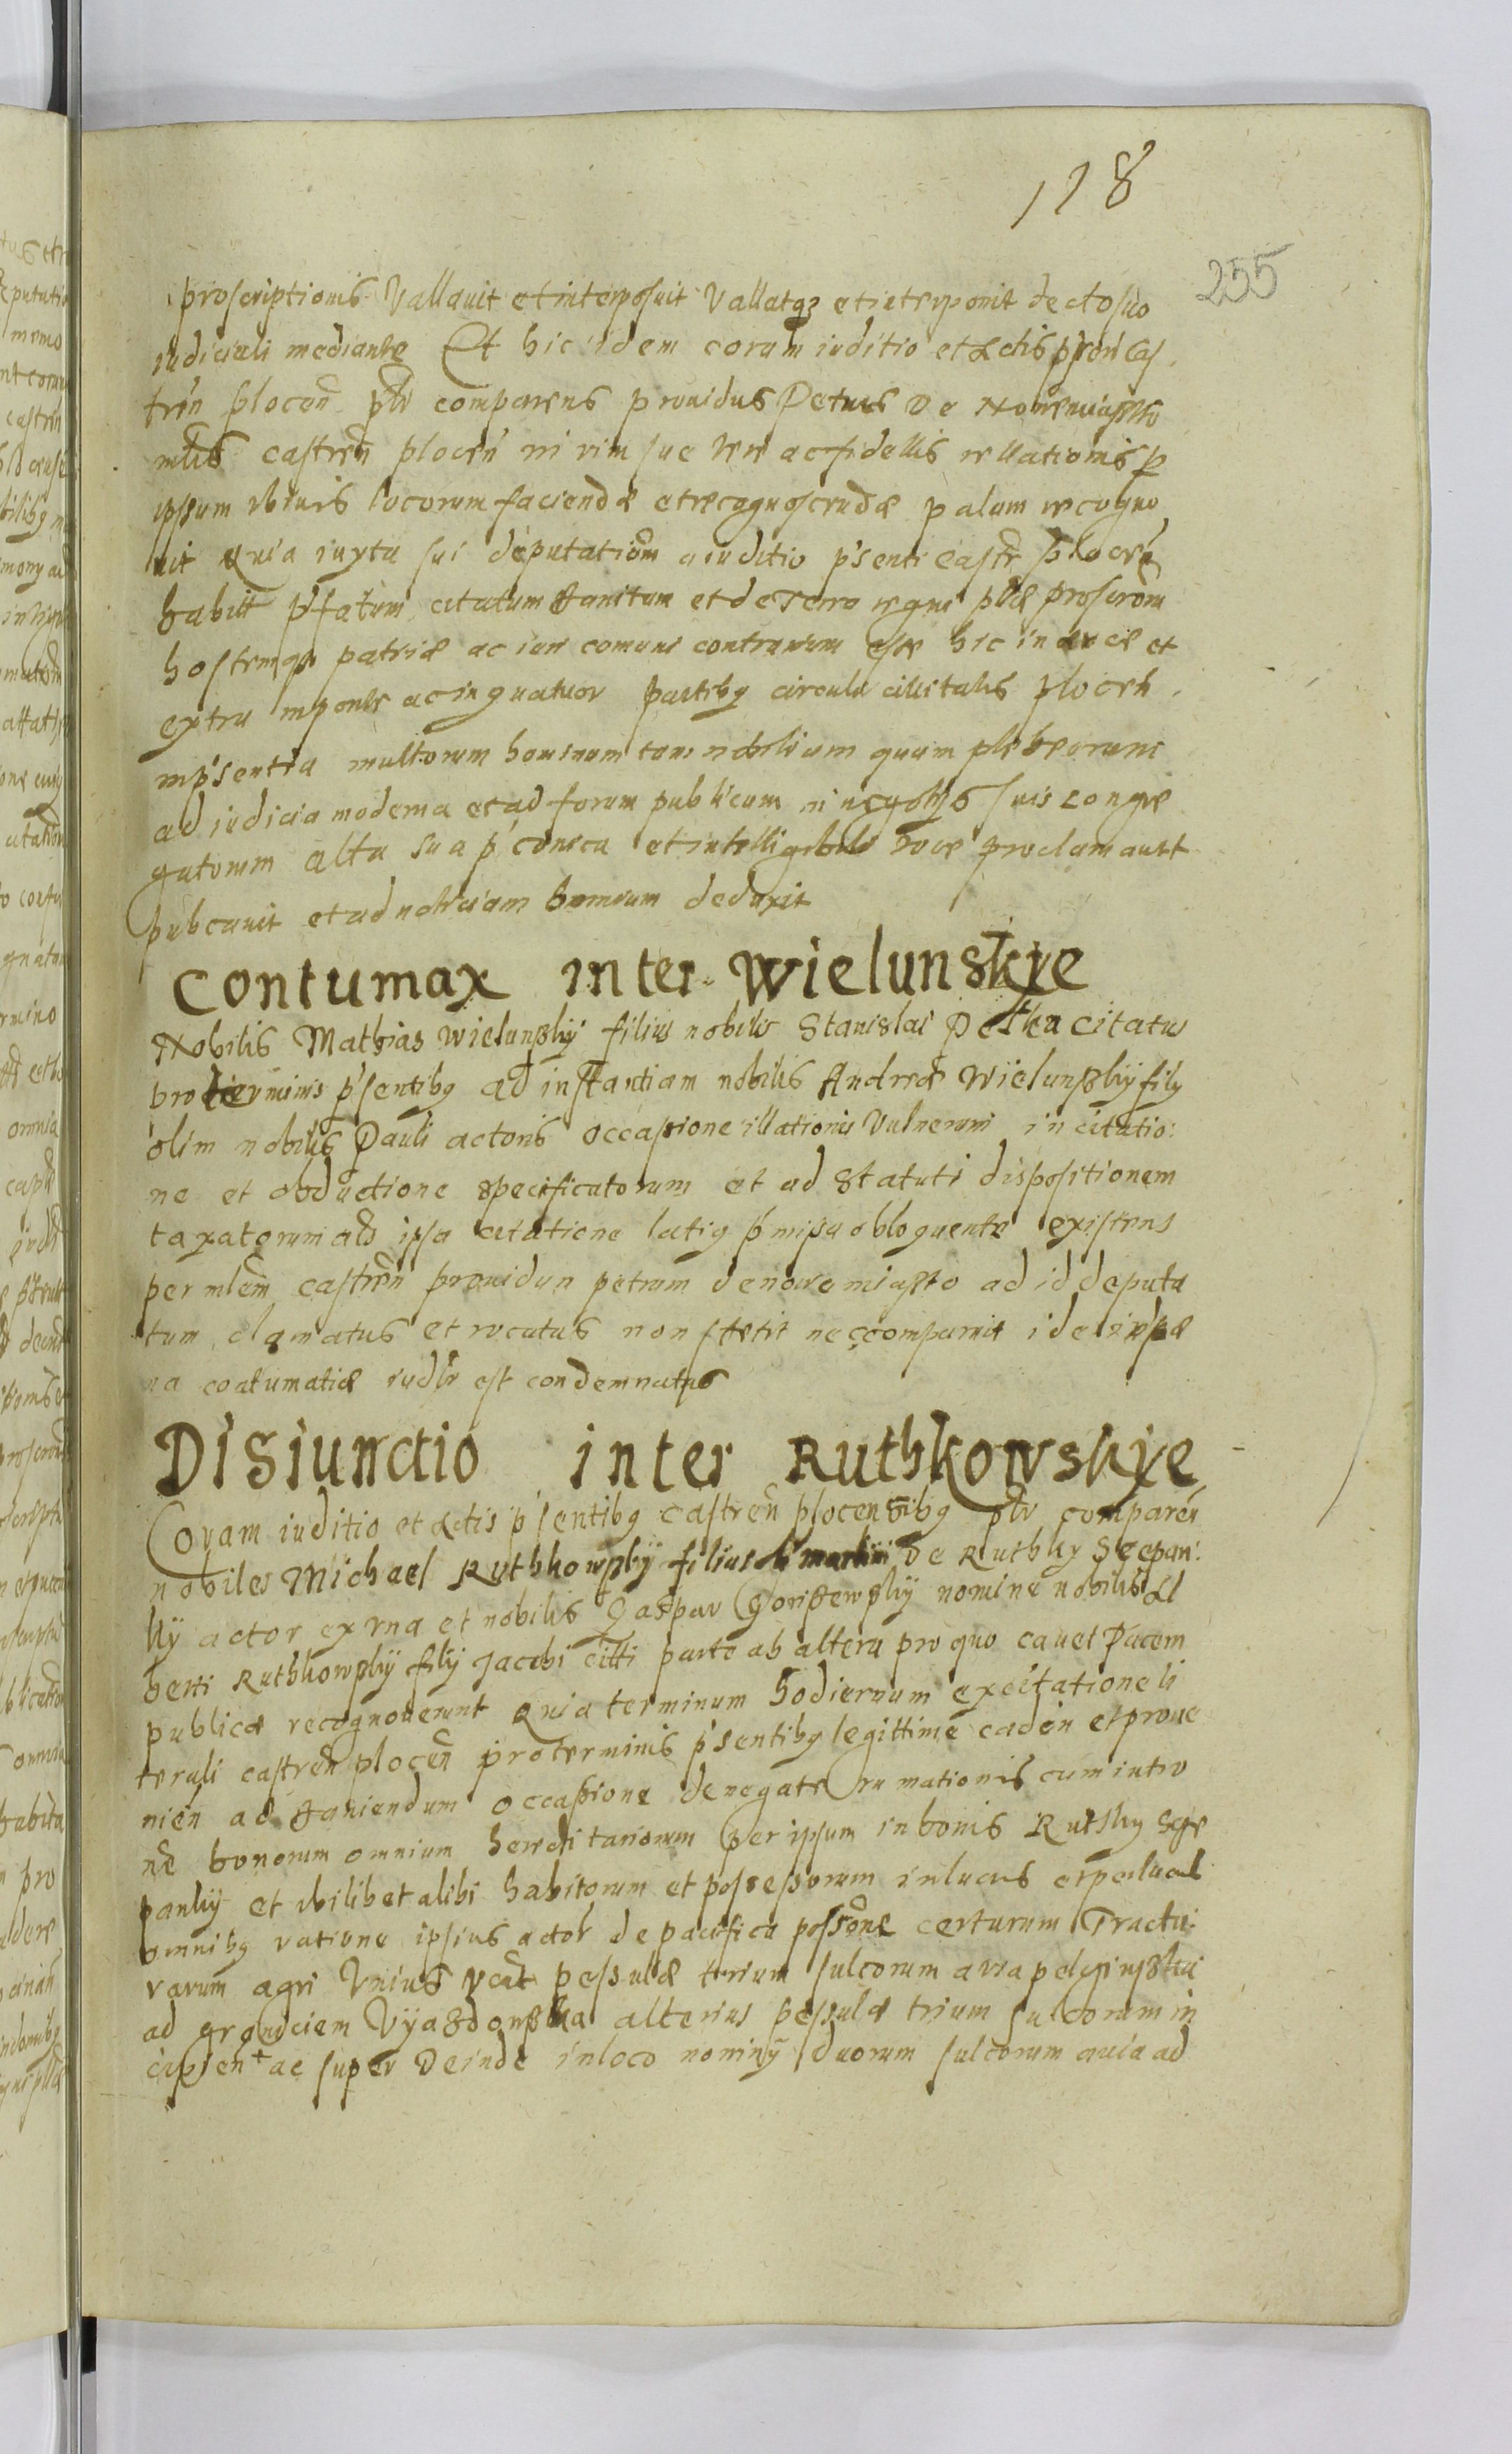 118
255
proscriptionis Vallauit et interposuit Vallatqз et interponit decto suo
iudiciali mediante Et hic idem coram iuditio et Actis pntibus Cas
tren plocen ptr comparens prouidus Petrus De Nowemiasto
mlis castren plocen in vim sue vere ac fidellis rellationis p
ipsum vbiuis locorum faciendæ et recognoscendæ palam recogno
uit Quia iuxta sui deputationem a iuditio p'senti Castr plocen
habitt p'fatum citatum banitum et de terra regni plæ proscrom
hostemqз patriæ ac iuri comuni contrarium esse hic in arce et
extra in ponte ac in quatuor partibɡ circuli ciuitatis plocen
in p'sentia multorum hominum tam nobilium quam plebeorum
ad iudicia moderna et ad forum publicum in negotijs suis congre
gatorum alta sua p'conica et intelligibili voce proclamauit
publicauit et ad notitiam hominum deduxit
Contumax inter Wielunskye
Nobilis Mathias Wielunskÿ filius nobilis Stanislai Pethka citatus
pro terminis p'sentibɡ ad instantiam nobilis Andreæ Wÿelunskÿ filÿ
olim nobilis Pauli actoris occasione illationis Vulnerum in citatio:
ne et obductione specificatorum et ad statuti dispositionem
taxatorum als ipsa citatione latiɡ p'missa obloquente existens
per mlem castren prouidum petrum de nowemiasto ad id deputa
tum clamatus et vocatus non stetit nec comparuit ideo in pæ
na contumatiæ iudlr est condemnatus
Disiunctio inter Ruthkowskye
Coram iuditio et Actis p'sentibɡ castren plocensibɡ ptr comparen
nobiles Michael Ruthkowskÿ filius martini De Ruthky Sczepan:
kÿ actor ex vna et nobilis Gaspar Goriszewskÿ nomine nobilis Al
berti Ruthkowskÿ filÿ Jacobi citti parte ab altera pro quo cauet Pacem
publicæ recognouerunt Quia terminum hodiernum ex citatione li
terali castren plocen pro terminis p'sentibɡ legittime caden et proue
nien ad baniendum occasione denegate rumationis cum intro
ne bonorum omnium hereditariorum per ipsum in bonis Rutky Scze
pankÿ et vbilibet alibi habitorum et possessorum in lucris et perlucris
omnibɡ ratione ipsius actor de pacifica possione certarum Tractu:
rarum agri Vnius vcdt pessulæ trium sulcorum a via
ad graniciem Vÿazdowska alterius pessulæ trium sulcorum in
cipien ac super Deinde in loco nominÿ duorum sulcorum a via ad